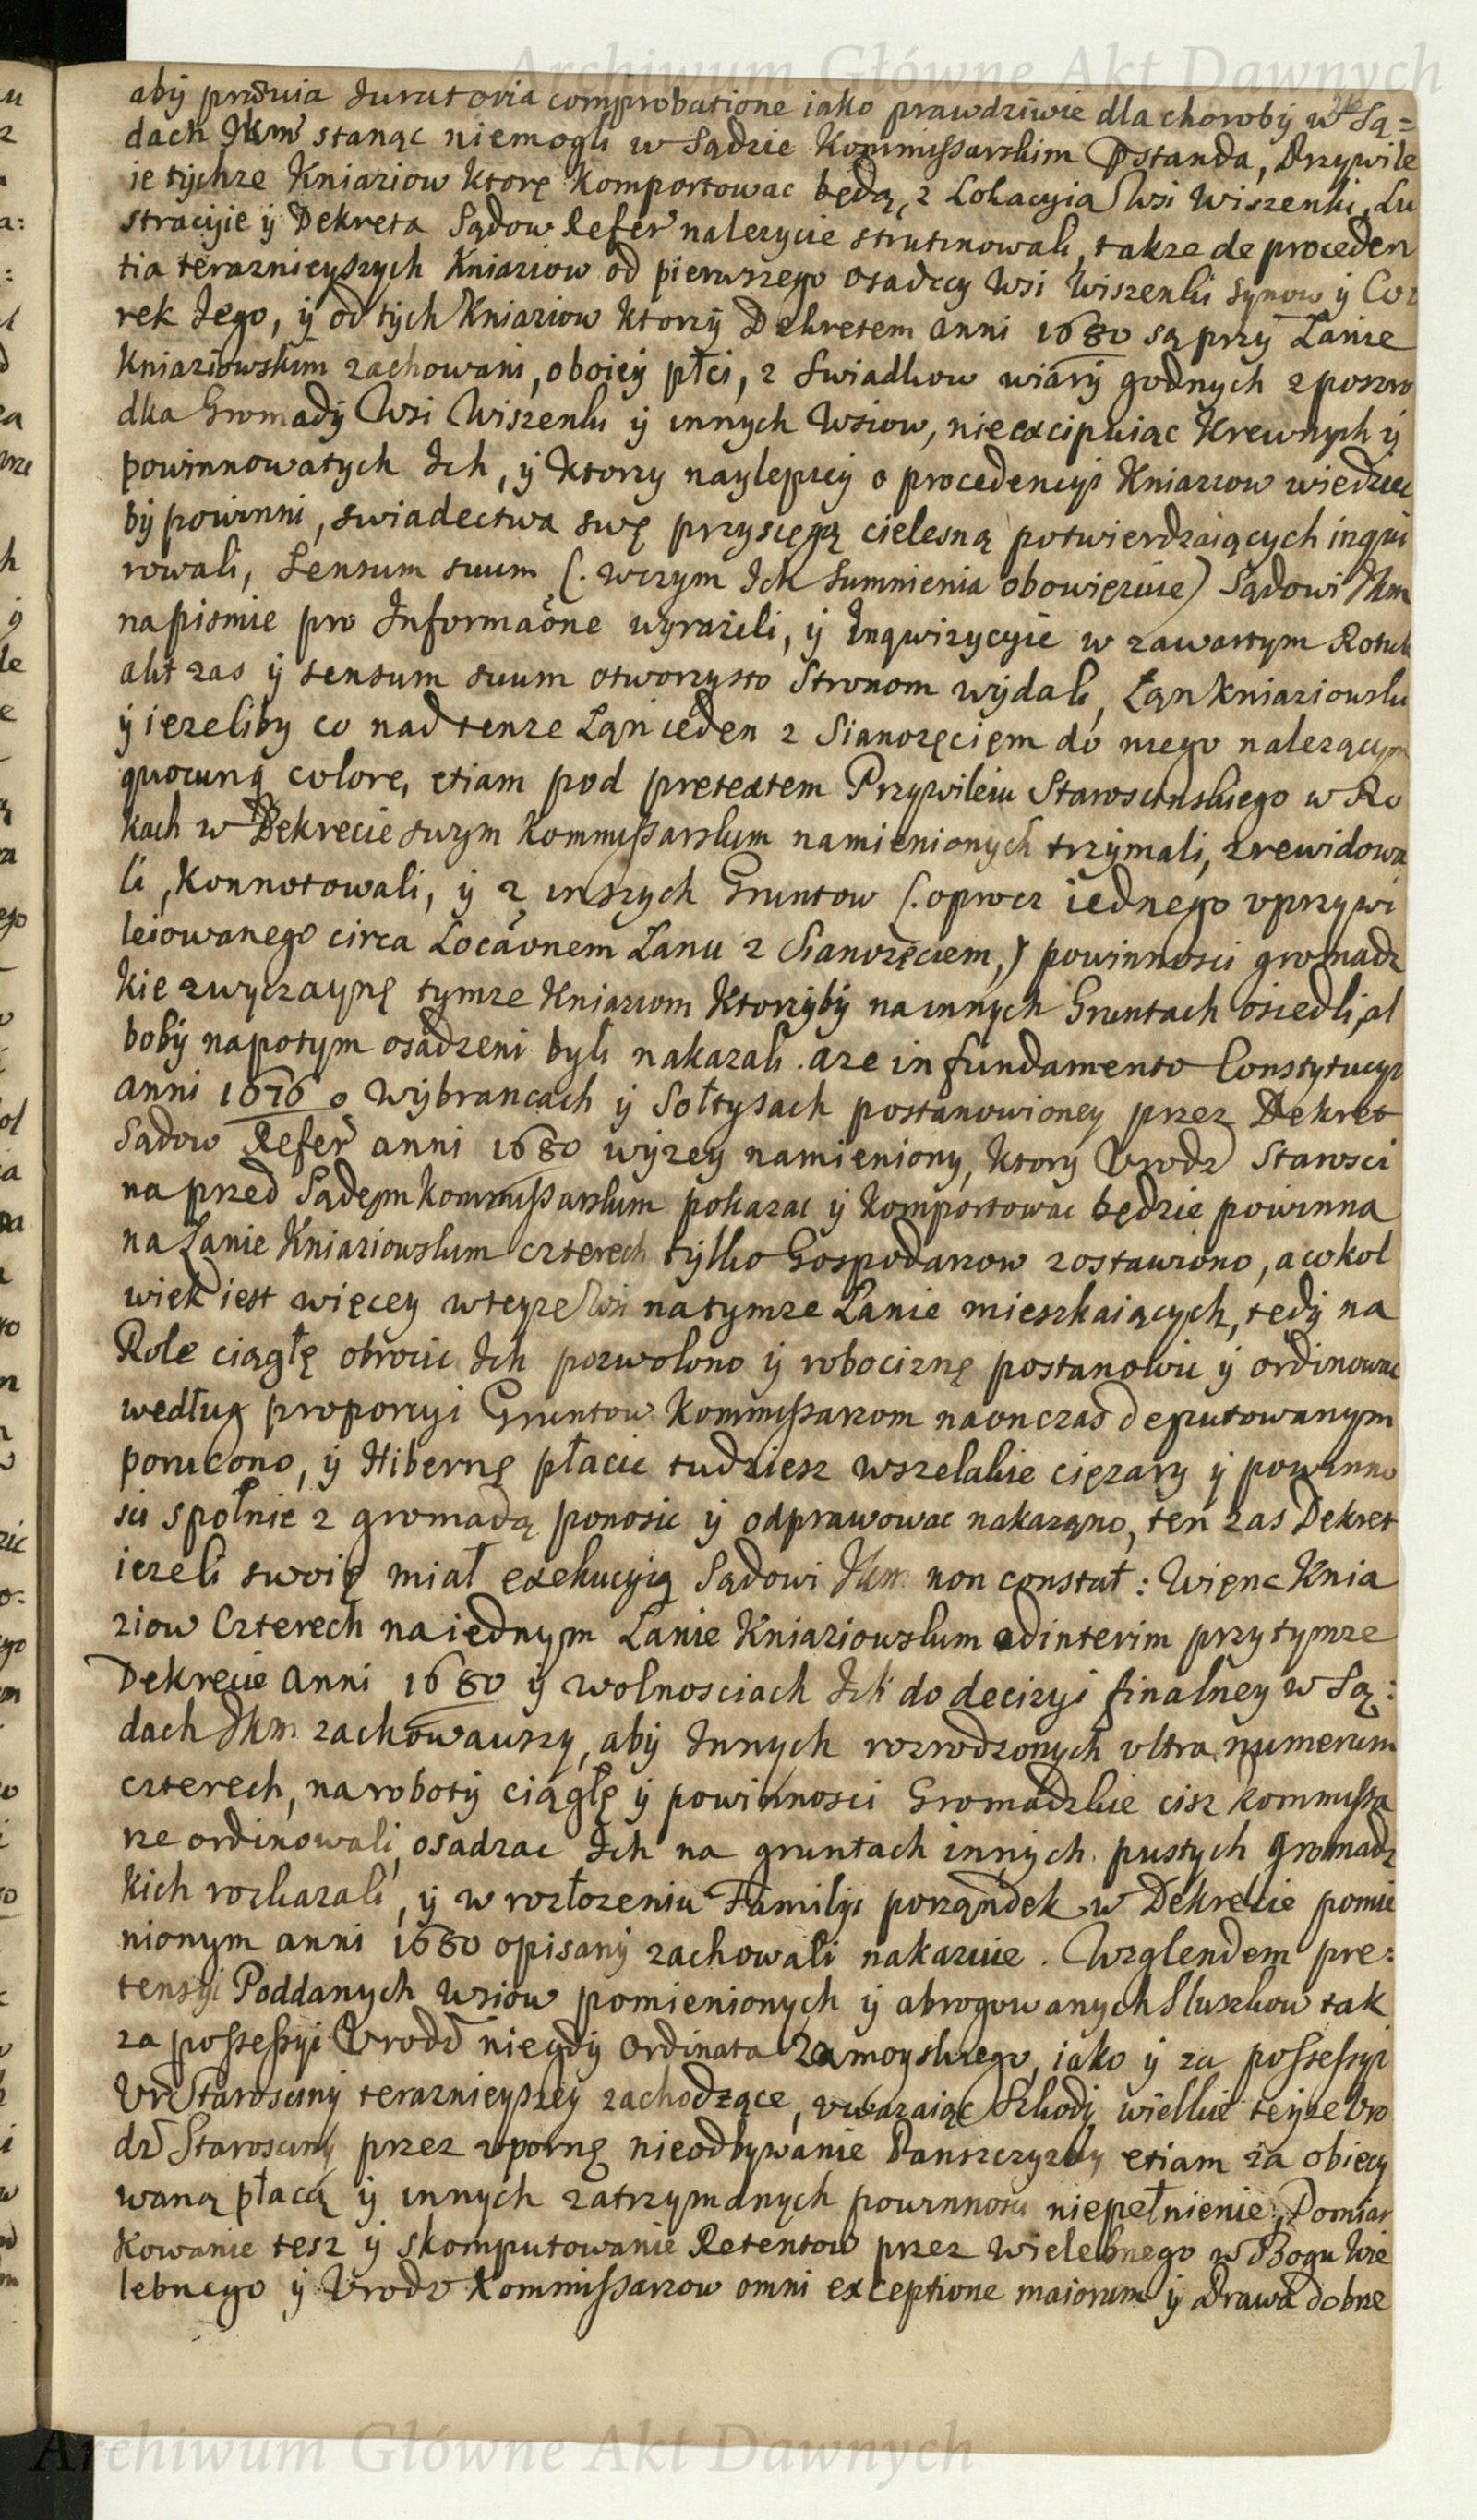 Archiwum Główne Akt Dawnych
aby prævia Iuratoria comprobatione iako prawdziwie dla choroby w Są=
dach JKm stanąc niemogli w Sądzie Kommissarskim standa, Przywile
ie tychze Kniaziow ktorę komportowac będą, z Lokacyia Wsi Wiszenki, Lu
stracyie ÿ Dekreta Sądow Refer nalezycie strutinowali, takze de proceden
tia teraznieyszych Kniaziow od pierwszego osadccy Wsi Wiszenki Synow ÿ Cor
rek Iego, ÿ od tych Kniaziow ktorzy Dekretem anni 1680 są przy Łanie
Kniaziowskim zachowani, oboiey płci, z Swiadkow wiary godnych z poszro
dka Gromady Wsi Wiszenki ÿ innych Wsiow, nieexcipuiąc Krewnych ÿ
powinnowatych Ich, ÿ ktorzy naylepiey o procedencyi Kniaziow wiedziec
by powinni, swiadectwa swę przysięgą cielesną potwierdzaiących inqui
rowali, Sensum suum (. wczym Ich Sumnienia obowięzuie) Sądowi JKm
napismie pro Informaone wyrazili, ÿ Inqwizycyie w zawartym Rotule
alit zas ÿ sensum suum otworzysto Stronom wydali, Łan Kniaziowski
ÿ iezeliby co nad tenze Łan ieden z Sianozęciem do niego nalezącym
quocunq colore, etiam pod pretextem Przywileiu Staroscinskiego w Ro
kach w Dekrecie swym Kommissarskim namienionych trzymali, zrewidowa
li, konnotowali, ÿ z inszych Gruntow (. oprocz iednego uprzywi
leiowanego circa Locaonem Łanu z Sianozęciem,) powinnosci gromadz
kie zwyczaynę tymze Kniaziom ktorzyby na innych Gruntach osiedli, al
boby napotym osadzeni byli nakazali. aze in fundamento Constytucyi
anni 1676 o Wybrancach ÿ Sołtysach postanowioney przez Dekret
Sądow Refer anni 1680 wyzey namieniony, ktory Vrodz Starosci
na przed Sądem Kommissarskim pokazac ÿ komportowac będzie powinna
na Łanie Kniaziowskim czterech tylko Gospodarzow zostawiono, a cokol
wiek iest więcey wteyze Wsi na tymze Łanie mieszkaiących, tedy na
Role ciągłę obrocic Ich pozwolono ÿ robociznę postanowic ÿ ordinowac
według proporcyi Gruntow Kommissarzom naonczas deputowanym
porucono, ÿ Hibernę płacic tudziesz wszelakie cięzary ÿ powinno
sci spolnie z gromadą ponosic ÿ odprawowac nakazano, ten zas Dekret
iezeli swoię miał exekucyią Sądowi JKm non constat: Więnc Knia
ziow Czterech na iednym Łanie Kniaziowskim ad interim przy tymze
Dekrecie Anni 1680 ÿ wolnosciach Ich do decizyi finalney w Są:
dach JKm zachowawszy, aby Innych rozrodzonych vltra numerum
czterech, na roboty ciągłę ÿ powinnosci Gromadzkie cisz Kommissa
rze ordinowali, osadzac Ich na gruntach innych pustych gromadz
kich rozkazali, ÿ w rozłozeniu Familyi porządek w Dekrecie pomie
nionym anni 1680 opisany zachowali nakazuie. Wzglendem pre:
tensyi Poddanych Wsiow pomienionych ÿ abrogowanych Sluszkow tak
za possessyi Vrodz niegdy Ordinata Zamoyskiego, iako ÿ za possessyi
Vr Starosciny teraznieyszey zachodzące, vwazaiąc Szkody wielkie teyze Vro
dz Starosciny przez upornę nieodbywanie Panszczyzny etiam za obiecy
waną płacą ÿ innych zatrzymanych powinnosci niepełnienie, Pomiar
kowanie tesz ÿ skomputowanie Retentow przez Wielebnego w Bogu Wie
lebnego ÿ Vrodz Kommissarzow omni exceptione maiorum ÿ Prawa dobrze
Archiwum Główne Akt Dawnych